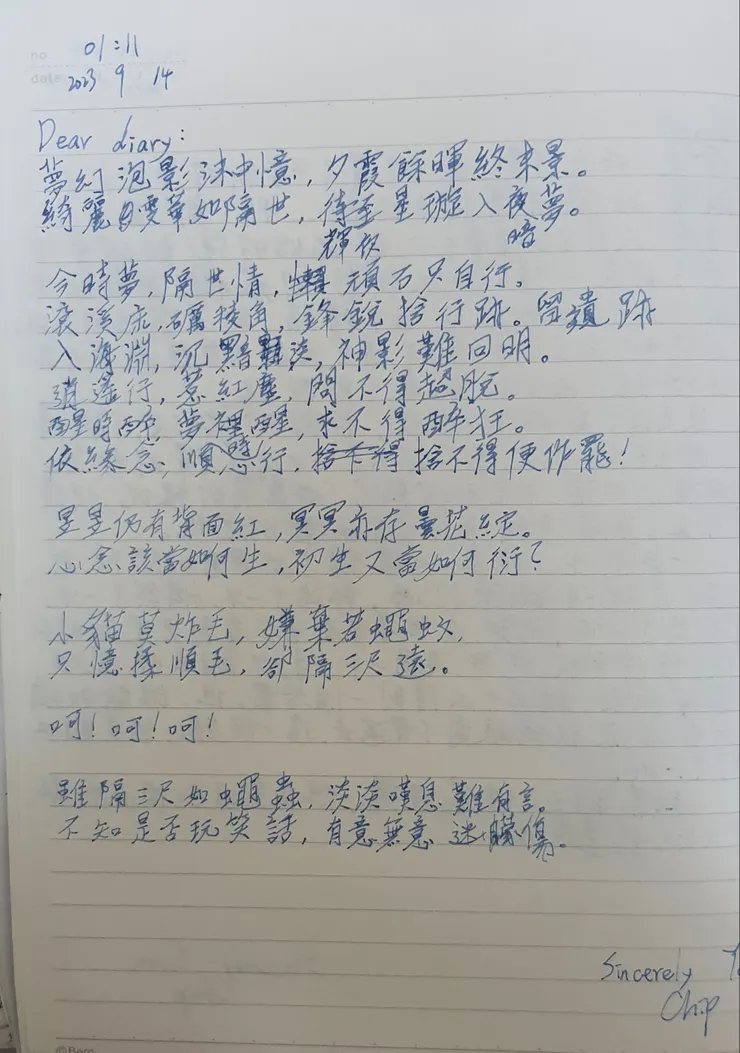 no 01:11
date 2023 9 14
Dear diary:
夢幻泡影沫中憶，夕霞餘暉終末景。
綺麗雯華如隔世，待至星璇入夜夢。
輝夜 暗
今時夢，隔世情，頑石只自行。
滾溪床，礪稜角，鋒銳捨行跡。留遺跡
入海淵，沉黯淡，神影難回明。
逍遙行，惹紅塵，問不得超脫。
醒時醉，夢裡醒，求不得醉狂。
依緣念，順行，捨不得便作罷！
昱昱仍有背面紅，冥冥亦存曇花綻。
心念該當如何生，初生又當如何衍？
小貓莫炸毛，嫌棄若蠅蚊，
只憶揉順毛，卻隔三尺遠。
呵！呵！呵！
雖隔三尺如蠅蟲，淡淡嘆息難有言。
不知是否玩笑話，有意無意迷朦傷。
Sincerely
Chip